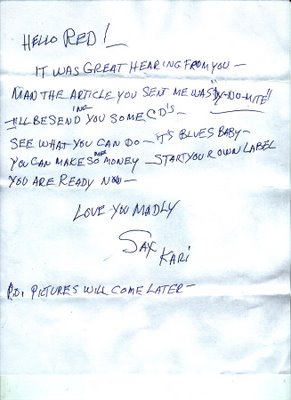 HELLO RED!
IT WAS GREAT HEARING FROM YOU —
MAN THE ARTICLE YOU SENT ME WAS "DY-NO-MITE"
I'LL BE SENDING YOU SOME CD'S —
SEE WHAT YOU CAN DO — IT'S BLUES BABY —
YOU CAN MAKE SOME MONEY — START YOUR OWN LABEL
YOU ARE READY NOW —
LOVE YOU MADLY
SAX
KARI
P.S. PICTURES WILL COME LATER —